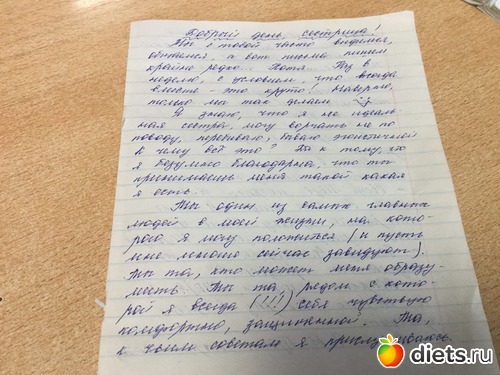 Добрый день, сестрица!
Мы с тобой часто видимся,
общаемся, а вот письма пишем
крайне редко... Хотя... Раз в
неделю, с условием, что всегда
вместе - это круто! Наверно,
только мы так делаем
Я знаю, что я не идеаль-
ная сестра, могу ворчать не по
поводу, ревную, бываю эгоистичной
К чему всё это? Да к тому, что
я безумно благодарна, что ты
принимаешь меня такой какая
я есть.
Ты один из самых главных
людей в моей жизни, на кото-
рого я могу положиться (и пусть
мне сейчас завидуют).
Ты та, кто может меня образу-
мить. Ты та рядом с кото-
рой я всегда (!!!) себя чувствую
комфортно, защищенной. Та,
к чьим советам я прислушиваюсь
diets.ru